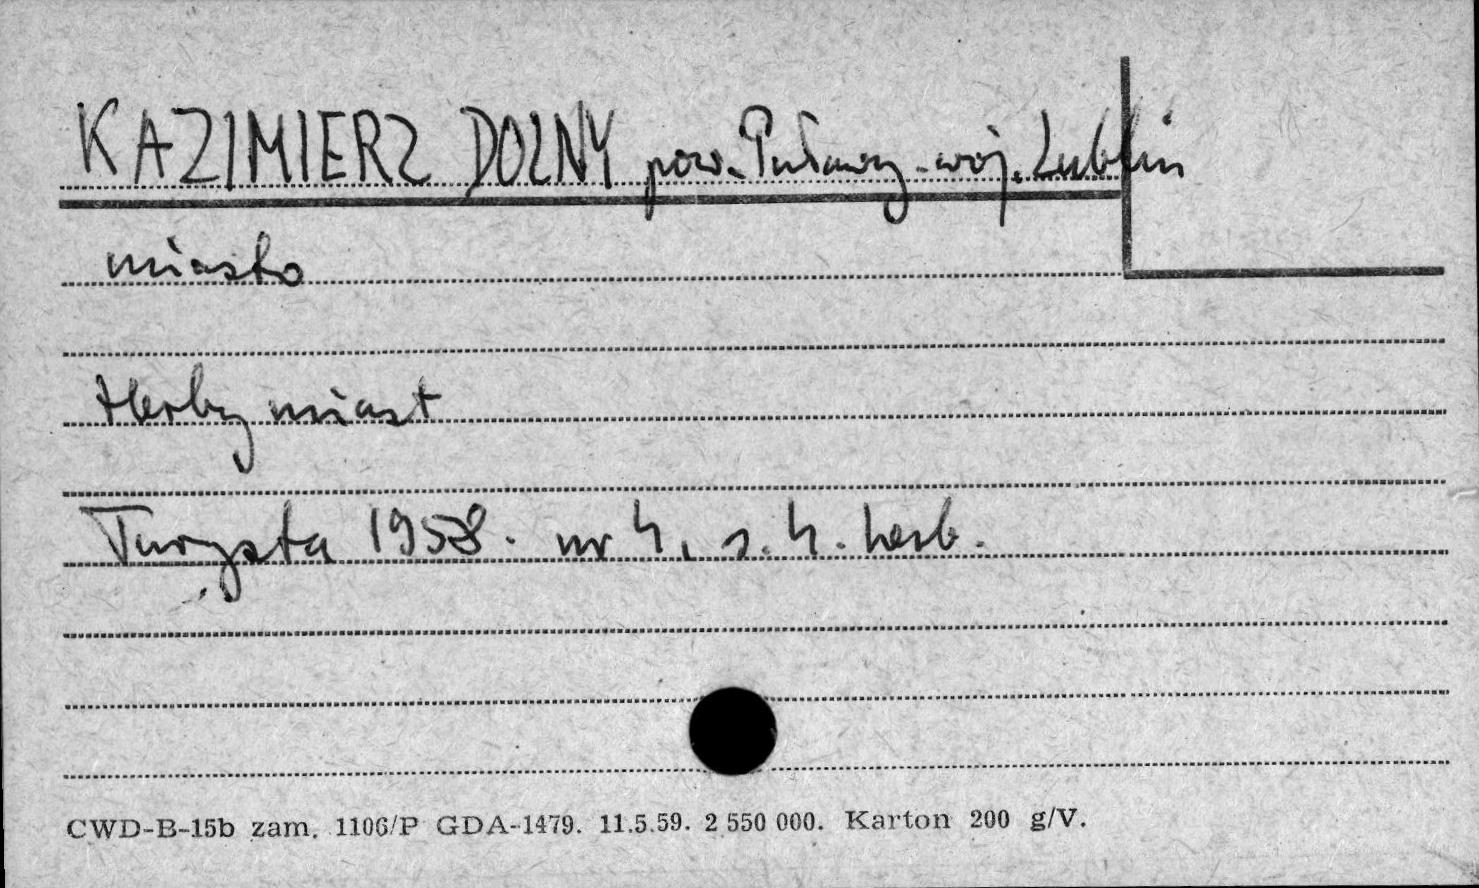 KAZIMIERZ DOLNY pow. Puławy - woj. Lublin
miasto
Herby miast
Turysta 1958. nr 4, s. 4. herb.
CWD-B-15b zam. 1106/P GDA-1479. 11.5.59. 2 550 000. Karton 200 g/V.